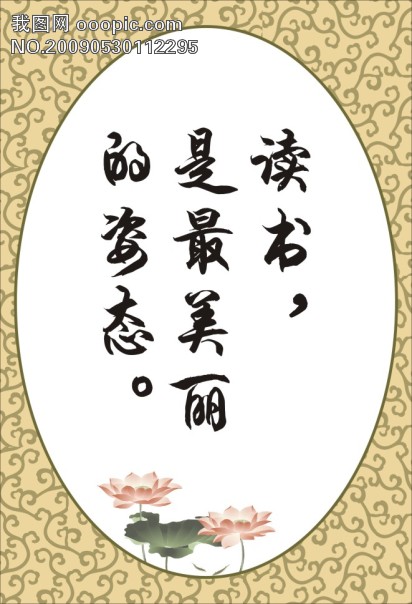 我图网 ooopic.com
NO.20090530112295
读书，
是最美丽
的姿态。